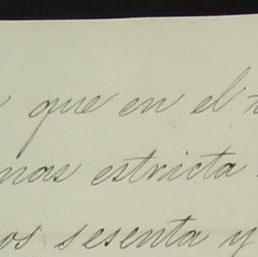 que en el
mas estricta
os sesenta y